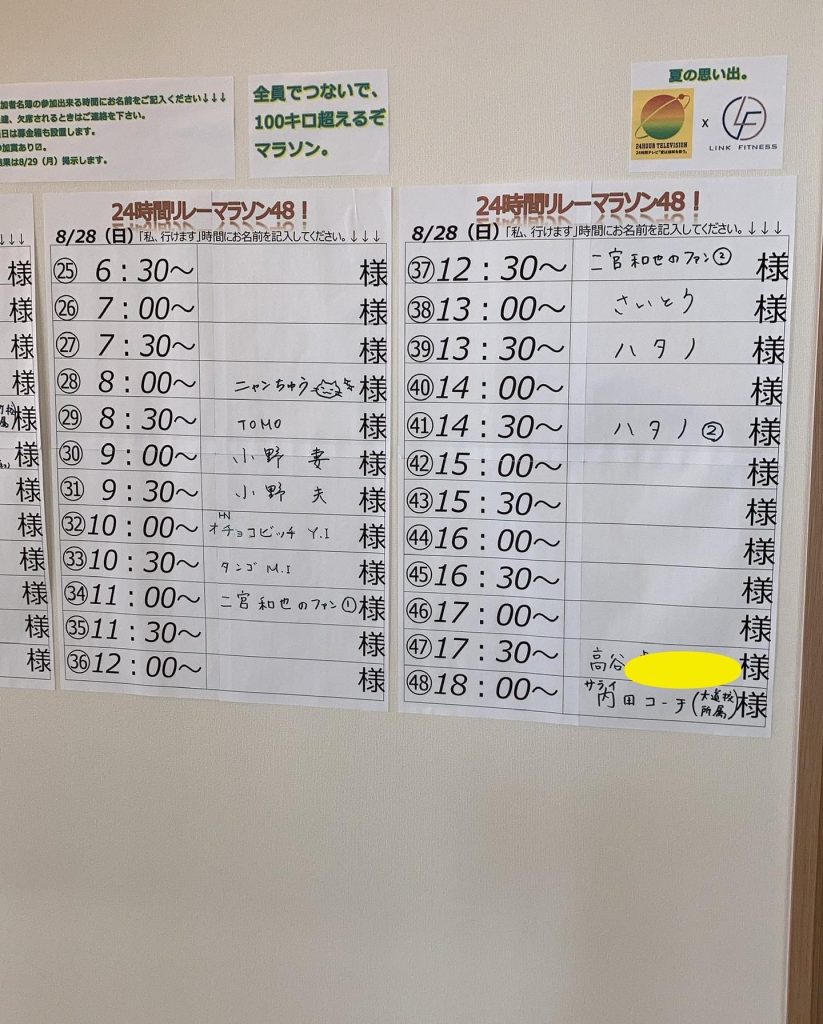 加者名簿の参加出来る時間にお名前をご記入ください↓↓↓
、欠席されるときはご連絡を下さい。
日は募金箱も設置します。
加賞あり☑。
果は8/29（月）掲示します。
全員でつないで、
100キロ超えるぞ
マラソン。
夏の思い出。
24HOUR TELEVISION
24時間テレビ"愛は地球を救う"
x
LF
LINK FITNESS
↓↓↓
様
様
様
様
様
様
様
様
様
様
様
様
24時間リレーマラソン48！
8/28（日）「私、行けます」時間にお名前を記入してください。↓↓↓
㉕ 6：30～ 様
㉖ 7：00～ 様
㉗ 7：30～ 様
㉘ 8：00～ ニャンちゅう 様
㉙ 8：30～ TOMO 様
㉚ 9：00～ 小野 妻 様
㉛ 9：30～ 小野 夫 様
HN
㉜10：00～ オチョコビッチ Y.I 様
㉝10：30～ タンゴ M.I 様
㉞11：00～ 二宮和也のファン① 様
㉟11：30～ 様
㊱12：00～ 様
24時間リレーマラソン48！
8/28（日）「私、行けます」時間にお名前を記入してください。↓↓↓
㊲12：30～ 二宮和也のファン② 様
㊳13：00～ さいとう 様
㊴13：30～ ハタノ 様
㊵14：00～ 様
㊶14：30～ ハタノ② 様
㊷15：00～ 様
㊸15：30～ 様
㊹16：00～ 様
㊺16：30～ 様
㊻17：00～ 様
㊼17：30～ 高谷 様
サライ
㊽18：00～ 内田コーチ(大道校所属) 様